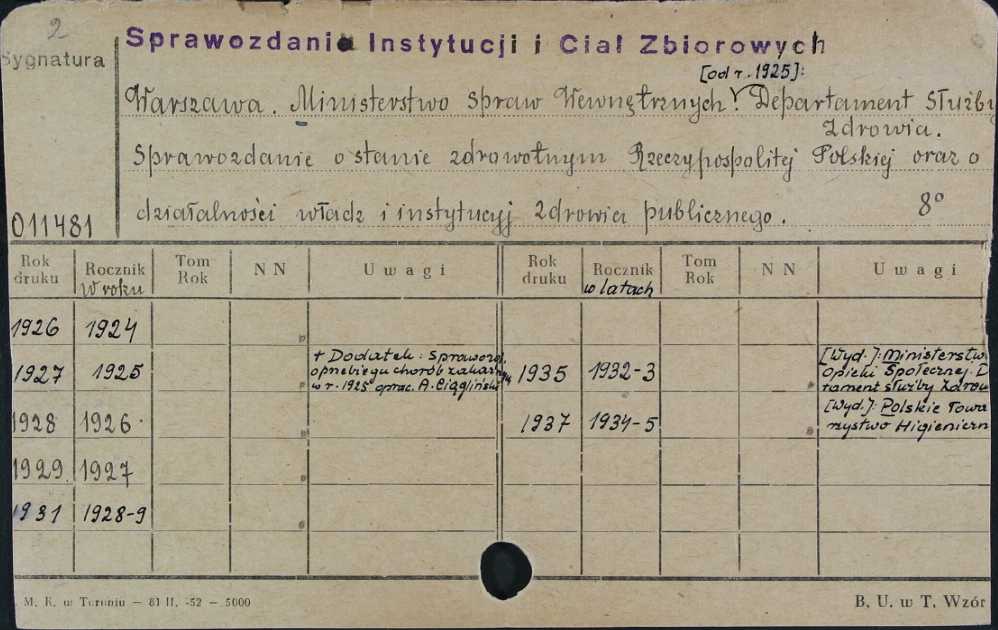 2
Sprawozdania Instytucji i Ciał Zbiorowych
Sygnatura
[od r. 1925]:
Warszawa. Ministerstwo Spraw Wewnętrznych. Departament Służby
Zdrowia.
Sprawozdanie o stanie zdrowotnym Rzeczypospolitej Polskiej oraz o
działalności władz i instytucyj zdrowia publicznego. 8°
011481
Rok druku Rocznik W roku Tom Rok NN Uwagi Rok druku Rocznik w latach Tom Rok NN Uwagi
1926 1924
1927 1925 + Dodatek: Sprawozd. o przebiegu chorób zakaźnych w r. 1925 oprac. A. Ciągliński 1935 1932-3 [Wyd.]: Ministerstwo Opieki Społecznej. D
tament służby zdrow
1928 1926 1937 1934-5 [Wyd.]: Polskie Towa
rzystwo Higieniczn
1929 1927
1931 1928-9
M. K. w Toruniu — 81 II. -52 — 5000
B. U. w T. Wzór